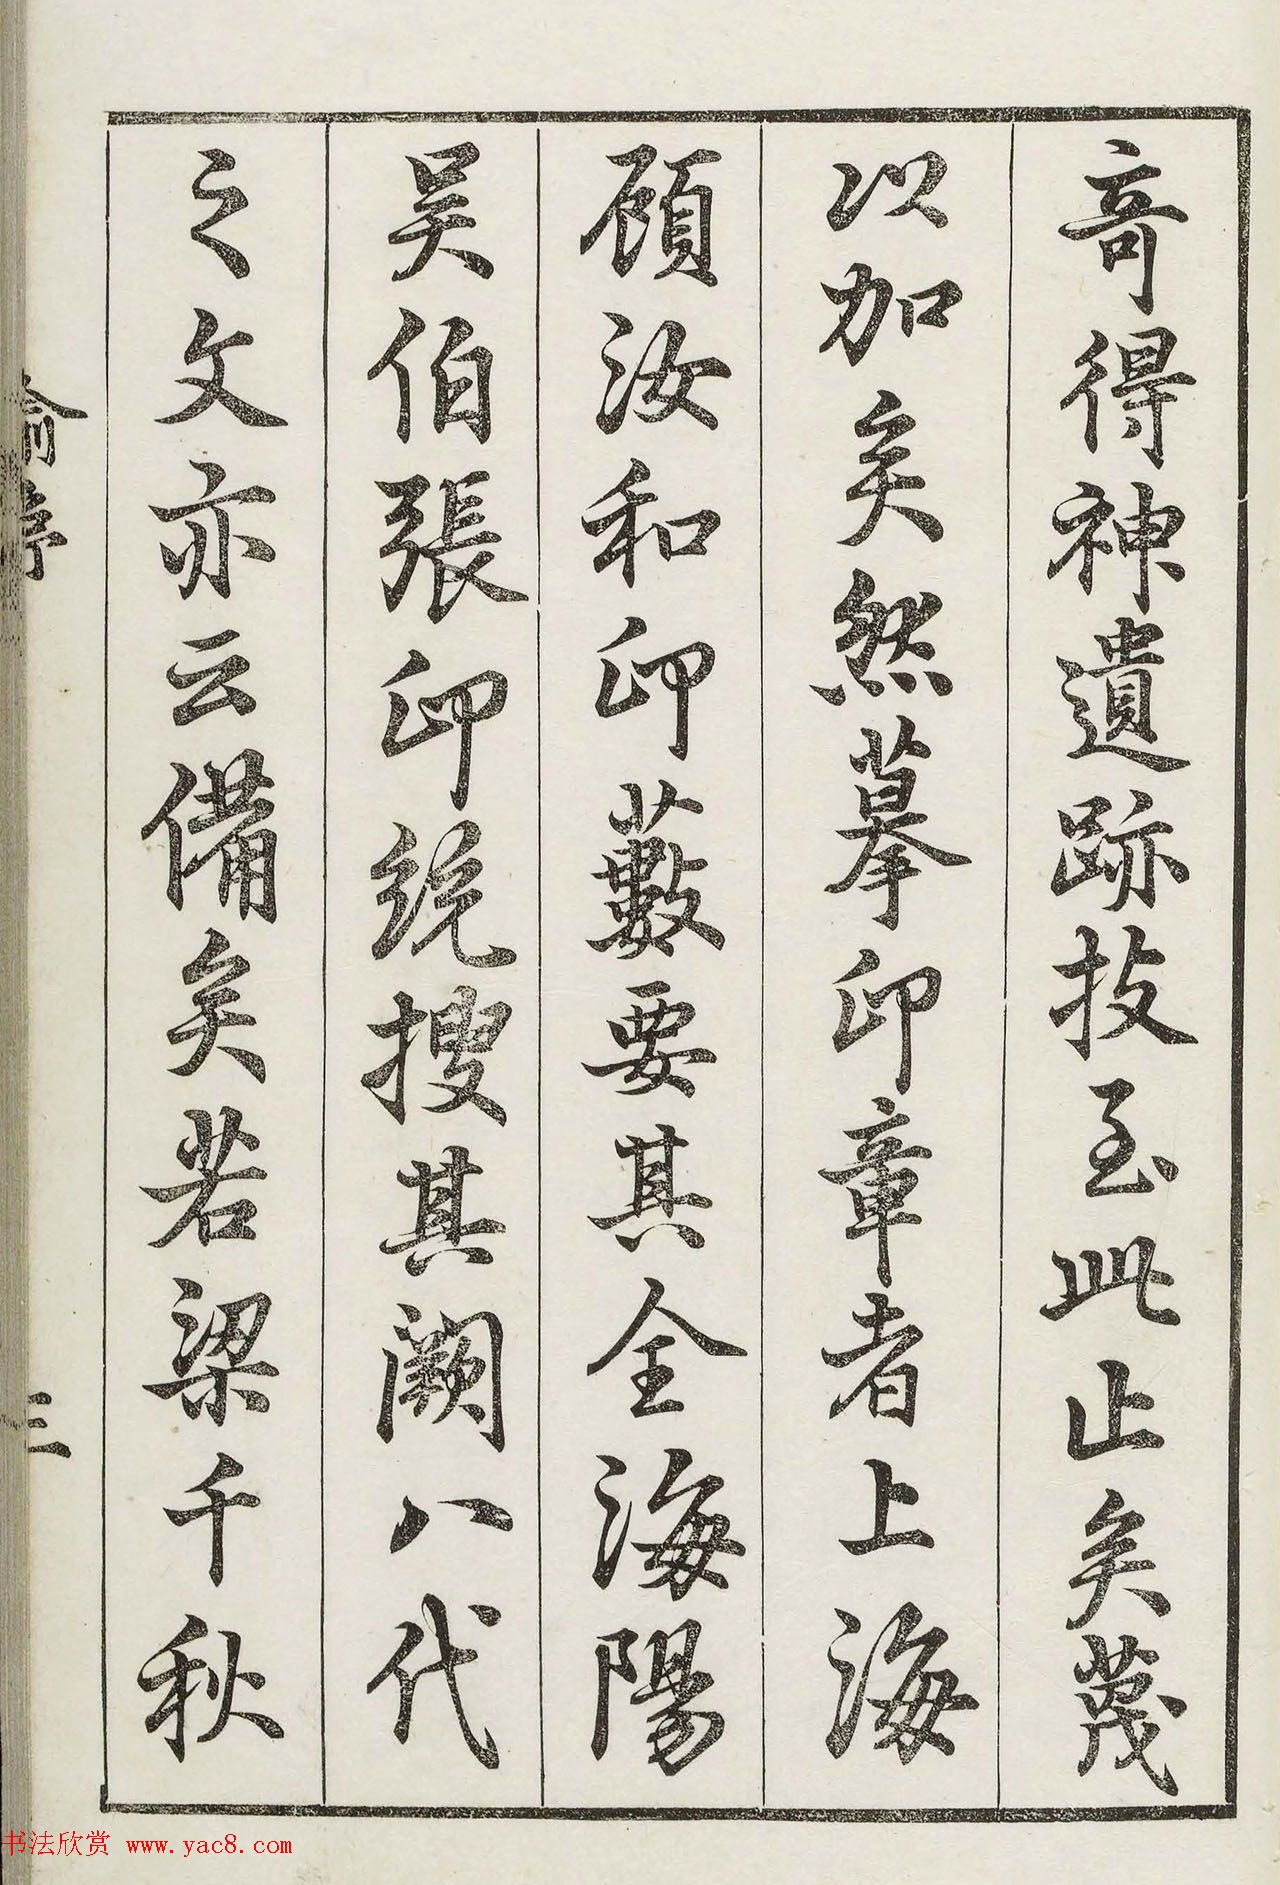 奇得神遺跡技至此止矣蔑
以加矣然摹印章者上海
顧汝和印藪要其全海陽
吴伯張印統搜其闕八代
之文亦云備矣若梁千秋
三
书法欣赏 www.yac8.com